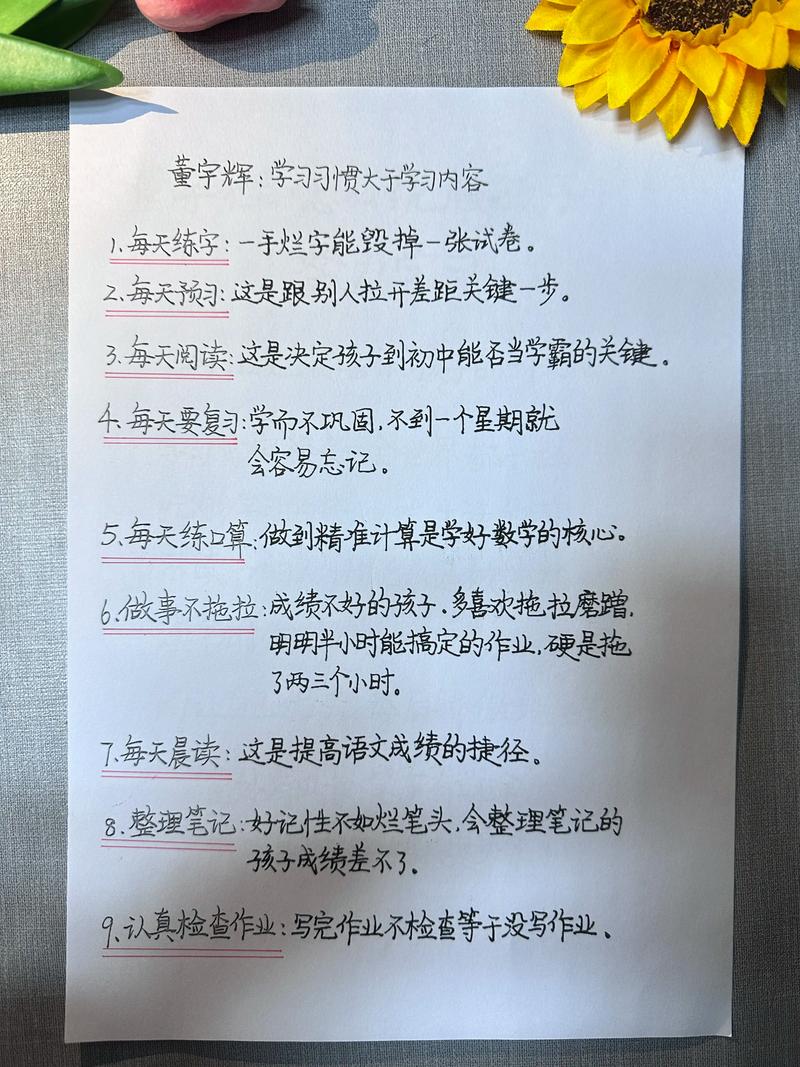 董宇辉:学习习惯大于学习内容
1.每天练字:一手烂字能毁掉一张试卷。
2.每天预习:这是跟别人拉开差距关键一步。
3.每天阅读:这是决定孩子到初中能否当学霸的关键。
4.每天要复习:学而不巩固,不到一个星期就
会容易忘记。
5.每天练口算:做到精准计算是学好数学的核心。
6.做事不拖拉:成绩不好的孩子.多喜欢拖拉磨蹭.
明明半小时能搞定的作业.硬是拖
了两三个小时。
7.每天晨读:这是提高语文成绩的捷径。
8.整理笔记:好记性不如烂笔头.会整理笔记的
孩子成绩差不了。
9.认真检查作业:写完作业不检查等于没写作业。